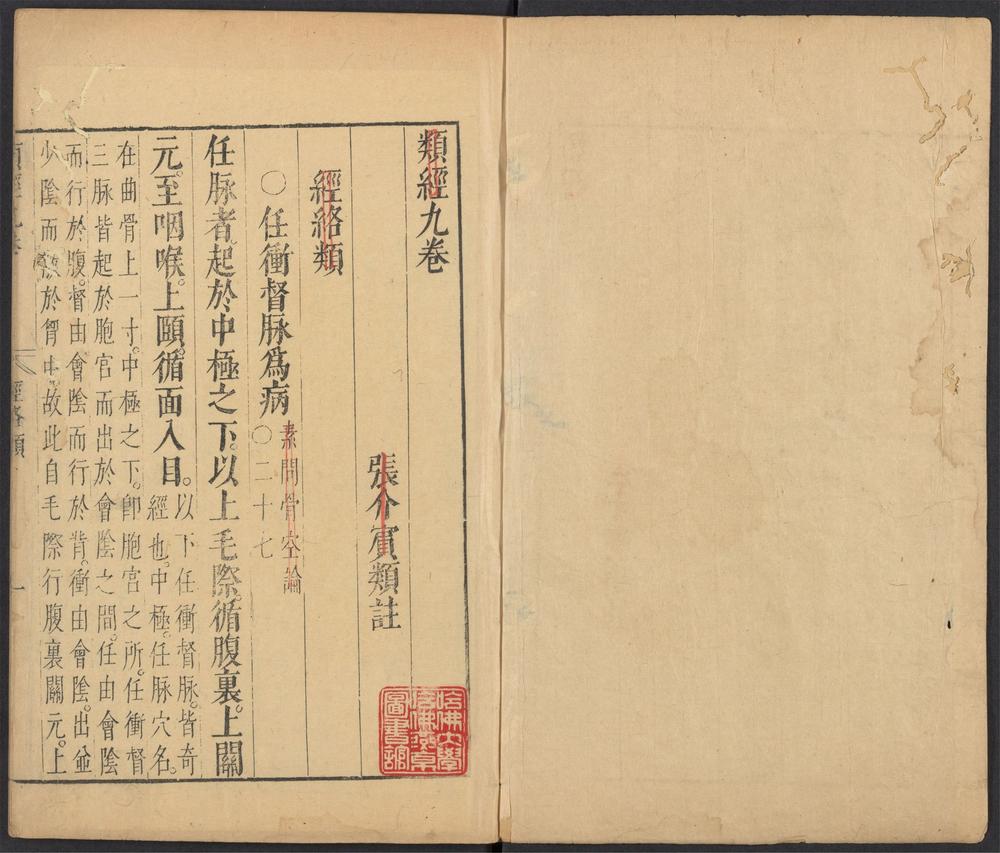 類經九卷
張介賓類註
經絡類
○任衝督脉爲病
素問骨空論
○二十七
任脉者。起於中極之下。以上毛際。循腹裏。上關
元。至咽喉。上頤。循面入目。
以下任衝督脉。皆奇
經也。中極。任脉穴名。
在曲骨上一寸。中極之下。卽胞宮之所。任衝督
三脉皆起於胞宮而出於會陰之間。任由會陰
而行於腹。督由會陰而行於背。衝由會陰。出並
少陰而散於胷中。故此自毛際行腹裏關元。上
類經九卷
經絡類
一
哈佛大學
哈佛燕京
圖書館